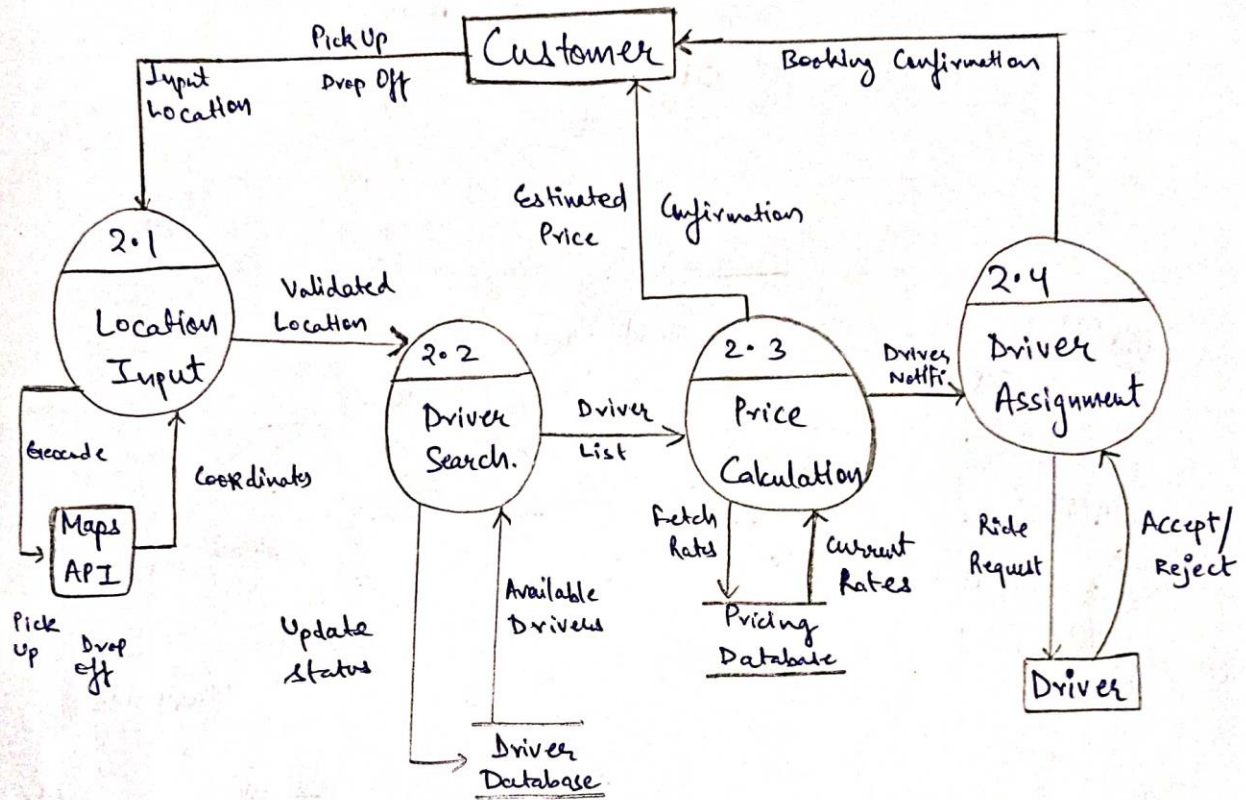 Customer
Pick Up
Drop Off
Input
Location
Booking Confirmation
Estimated
Price
Confirmation
2.1
Location
Input
Validated
Location
2.2
Driver
Search.
Driver
List
2.3
Price
Calculation
Driver
Notifi
2.4
Driver
Assignment
Geocode
Coordinates
Maps
API
Pick
Up
Drop
off
Update
Status
Available
Drivers
Driver
Database
Fetch
Rates
Current
Rates
Pricing
Database
Ride
Request
Accept/
Reject
Driver